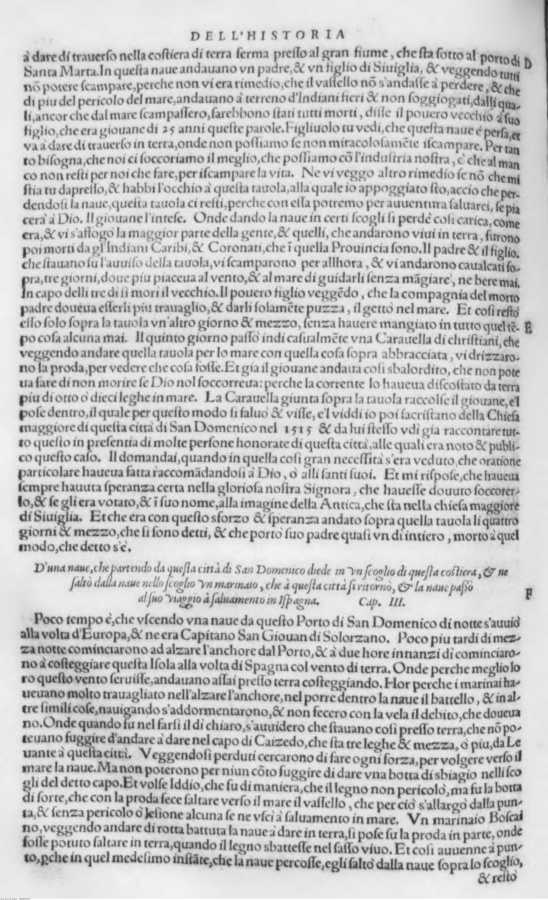 DELL'HISTORIA
à dare di trauerso nella costiera di terra ferma presso al gran fiume, che sta sotto al porto di D
Santa Marta. In questa naue andauano vn padre, & vn figlio di Siuiglia, & veggendo tutti
nõ potere scampare, perche non vi era rimedio, che il vassello nõ s'andasse à perdere, & che
di piu del pericolo del mare, andauano à terreno d'Indiani fieri & non soggiogati, dalli qua-
li, ancor che dal mare scampassero, sarebbono stati tutti morti, disse il pouero vecchio à suo
figlio, che era giouane di 25 anni queste parole. Figliuolo tu vedi, che questa naue è persa, et
va à dare di trauerso in terra, onde non possiamo se non miracolosamẽte iscampare. Per tan
to bisogna, che noi ci soccoriamo il meglio, che possiamo cõ l'industria nostra, è che al man
co non resti per noi che fare, per iscampare la vita. Ne vi veggo altro rimedio se nõ che mi
stia tu dapresso, & habbi l'occhio à questa tauola, alla quale io appoggiato sto, accio che per-
dendosi la naue, questa tauola ci resti, perche con essa potremo per auuentura saluarci, se pia
cerà à Dio. Il giouane l'intese. Onde dando la naue in certi scogli si perdè cosi carica, come
era, & vi s'affogo la maggior parte della gente, & quelli, che andarono viui in terra, furono
poi morti da gl'Indiani Caribi, & Coronati, che ĩ quella Prouincia sono. Il padre & il figlio,
che stauano su l'auuiso della tauola, vi scamparono per allhora, & vi andarono caualcati so-
pra, tre giorni, doue piu piaceua al vento, & al mare di guidarli senza mãgiare, ne bere mai.
In capo delli tre dì si morì il vecchio. Il pouero figlio veggẽdo, che la compagnia del morto
padre doueua esserli piu trauaglio, & darli solamẽte puzza, il gettò nel mare. Et cosi restò
esso solo sopra la tauola vn'altro giorno & mezzo, senza hauere mangiato in tutto quel tẽ- E
po cosa alcuna mai. Il quinto giorno passò indi casualmẽte vna Carauella di christiani, che
veggendo andare quella tauola per lo mare con quella cosa sopra abbracciata, vi drizzaro-
no la proda, per vedere che cosa fosse. Et già il giouane andaua cosi sbalordito, che non pote
ua fare di non morire se Dio nol soccorreua: perche la corrente lo haueua discostato da terra
piu di otto ò dieci leghe in mare. La Carauella giunta sopra la tauola raccolse il giouane, e'l
pose dentro, il quale per questo modo si saluò & visse, e'l viddi io poi sacristano della Chiesa
maggiore di questa città di San Domenico nel 1515 & da lui stesso vdì gia raccontare tut-
to questo in presentia di molte persone honorate di questa città, alle quali era noto & publi-
co questo caso. Il domandai, quando in quella cosi gran necessità s'era veduto, che oratione
particolare haueua fatta raccomãdandosi à Dio, ò alli santi suoi. Et mi rispose, che haueua
sempre hauuta speranza certa nella gloriosa nostra Signora, che hauesse douuto soccorer-
lo, & se gli era votato, & ĩ suo nome, alla imagine della Antica, che sta nella chiesa maggiore
di Siuiglia. Et che era con questo sforzo & speranza andato sopra quella tauola li quattro
giorni & mezzo, che si sono detti, & che portò suo padre quasi vn dì intiero, morto à quel
modo, che detto s'è.
D'una naue, che partendo da questa città di San Domenico diede in vn scoglio di questa costiera, & ne
saltò dalla naue nello scoglio vn marinaio, che à questa città si ritornò, & la naue passò
al suo viaggio à saluamento in Ispagna. Cap. III. F
Poco tempo è, che vscendo vna naue da questo Porto di San Domenico di notte s'auuiò
alla volta d'Europa, & ne era Capitano San Giouan di Solorzano. Poco piu tardi di mez-
za notte cominciarono ad alzare l'anchore dal Porto, & à due hore innanzi dì cominciaro-
no à costeggiare questa Isola alla volta di Spagna col vento di terra. Onde perche meglio lo
ro questo vento seruisse, andauano assai presso terra costeggiando. Hor perche i marinai ha-
ueuano molto trauagliato nell'alzare l'anchore, nel porre dentro la naue il battello, & in al-
tre simili cose, nauigando s'addormentarono, & non fecero con la vela il debito, che doueua
no. Onde quando fu nel farsi il dì chiaro, s'auuidero che stauano cosi presso terra, che nõ po-
teuano fuggire d'andare à dare nel capo di Caizedo, che sta tre leghe & mezza, ò piu, da Le
uante à questa città. Veggendosi perduti cercarono di fare ogni forza, per volgere verso il
mare la naue. Ma non poterono per niun cõto fuggire di dare vna botta di sbiagio nelli sco
gli del detto capo. Et volse Iddio, che fu di maniera, che il legno non pericolò, ma fu la botta
di sorte, che con la proda fece saltare verso il mare il vassello, che per ciò s'allargò dalla pun-
ta, & senza pericolo ò lesione alcuna se ne vscì à saluamento in mare. Vn marinaio Boscai
no, veggendo andare di rotta battuta la naue à dare in terra, si pose su la proda in parte, onde
fosse potuto saltare in terra, quando il legno sbattesse nel sasso viuo. Et cosi auuenne à pun-
to, ꝑche in quel medesimo instãte, che la naue percosse, egli saltò dalla naue sopra lo scoglio,
& restò